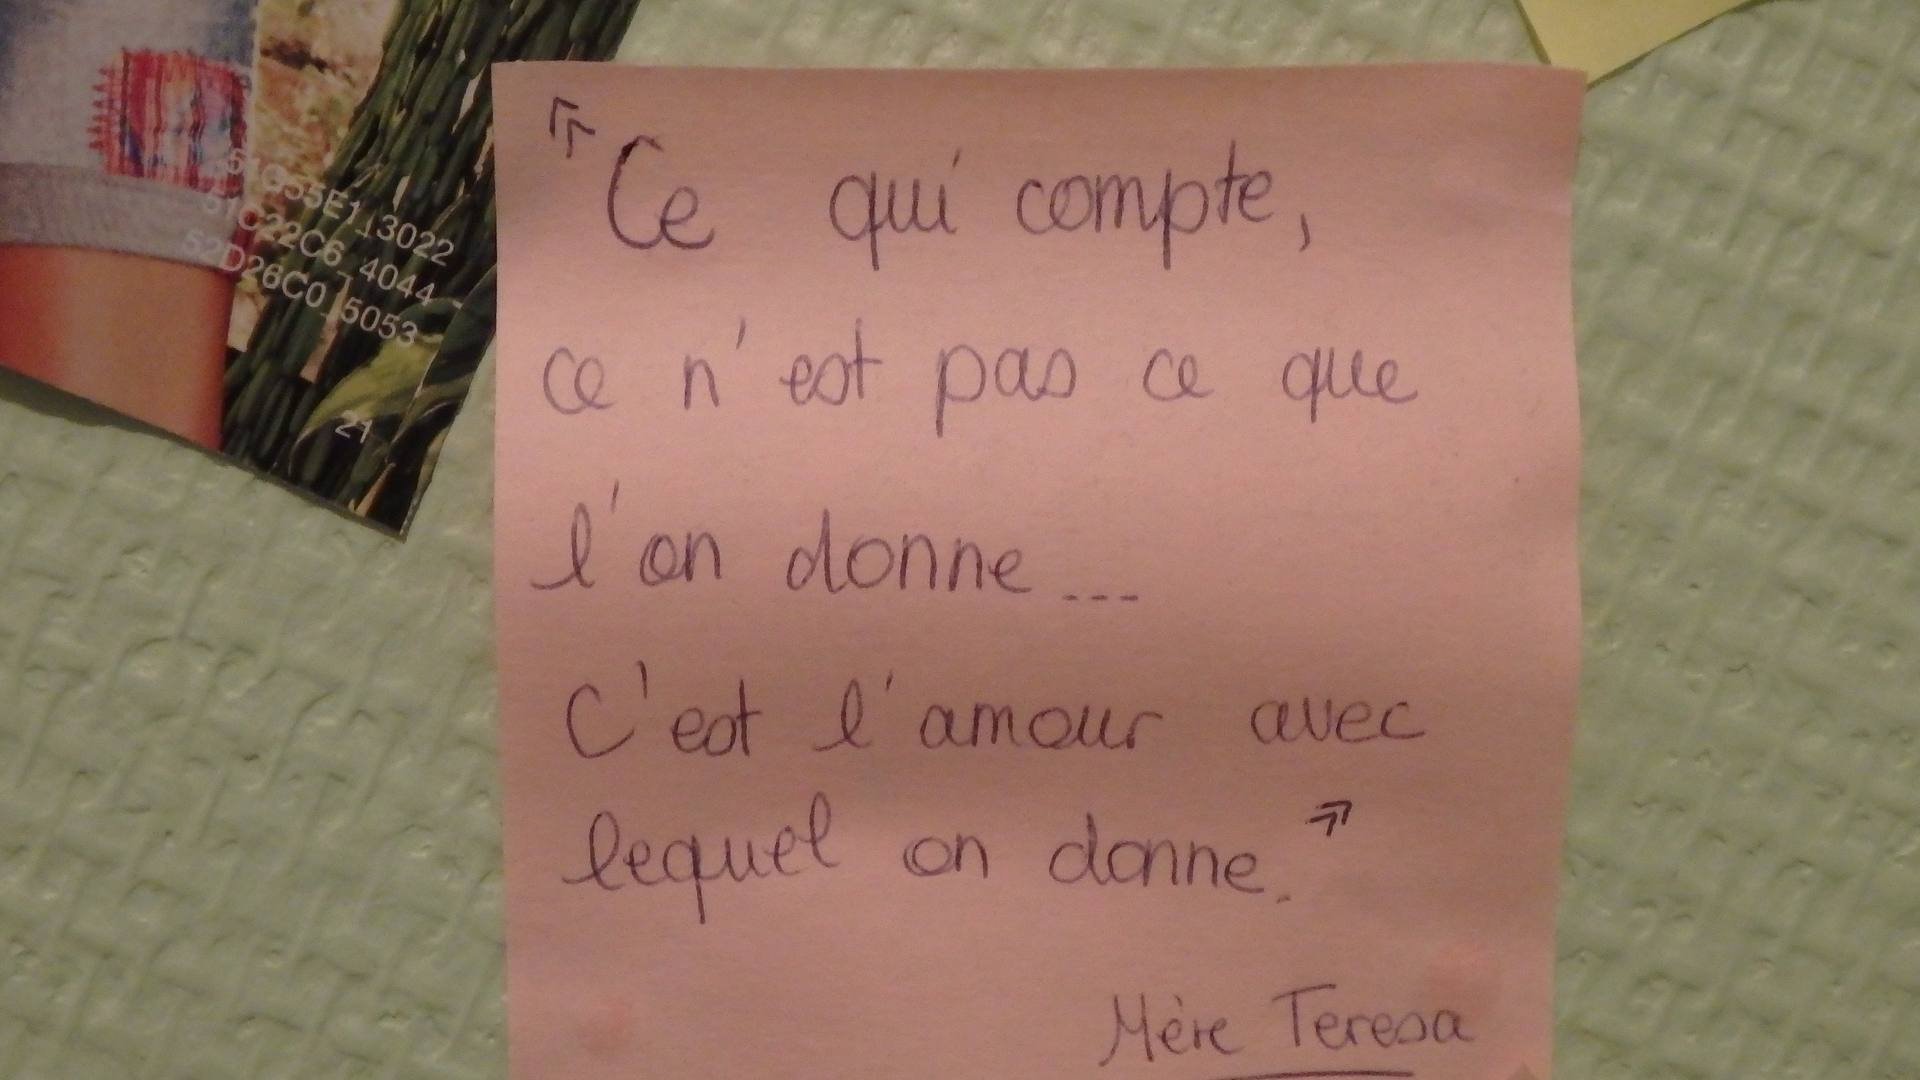 551G55E1_3022
51C22C6_4044
52D26C0_5053
21
« Ce qui compte,
ce n'est pas ce que
l'on donne...
C'est l'amour avec
lequel on donne. »
Mère Teresa